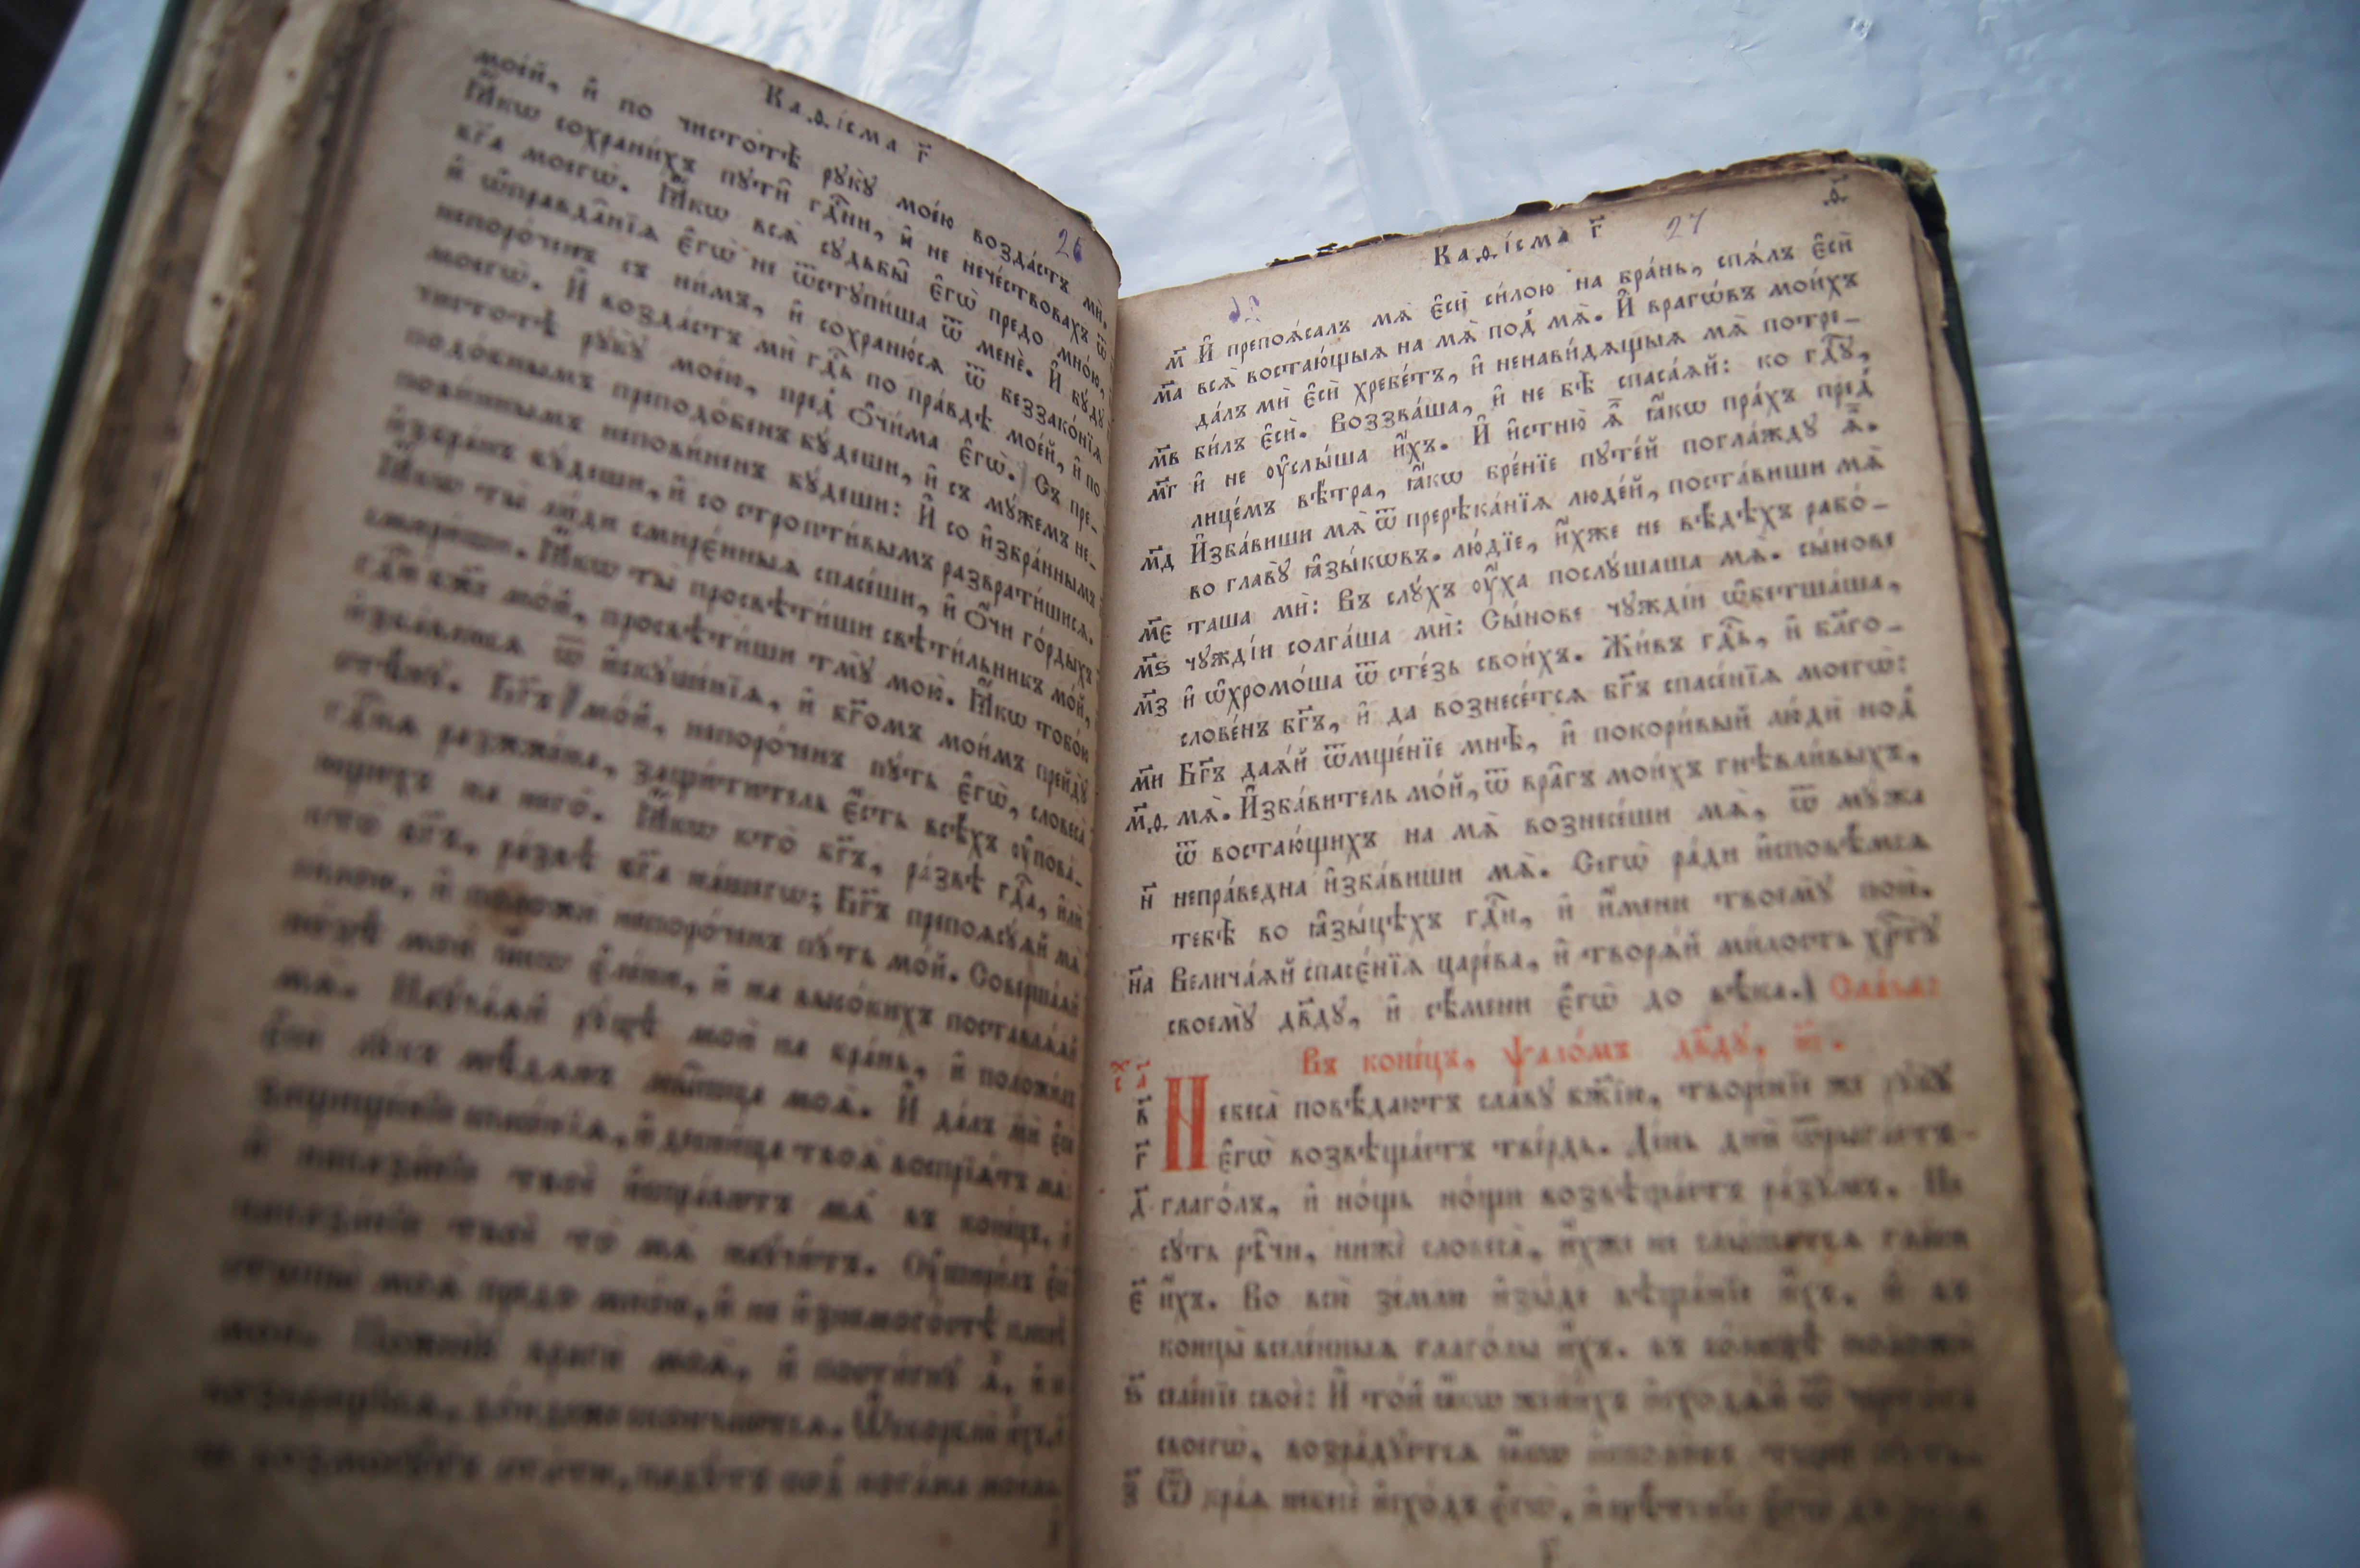 Каѳі́сма г҃
26
мое́й, и҆ по чистотѣ̀ рꙋкꙋ̀ моє́ю возда́стъ мѝ.
Ꙗ҆́кѡ сохрани́хъ пꙋти̑ гдⷭ҇ни, и҆ не нече́ствовахъ ѿ
бг҃а моегѡ̀. Ꙗ҆́кѡ всѧ̀ сꙋдьбы̑ є҆гѡ̀ предо мно́ю,
и҆ ѡ҆правда̑нїѧ є҆гѡ̀ не ѿстꙋпи́ша ѿ менѐ. И҆ бꙋ́дꙋ
непоро́ченъ съ ни́мъ, и҆ сохраню́сѧ ѿ беззако́нїѧ
моегѡ̀. И҆ возда́стъ мѝ гдⷭ҇ь по пра́вдѣ мое́й, и҆ по
чистотѣ̀ рꙋкꙋ̀ моє́ю, пред̾ ѻ҆чи́ма є҆гѡ̀. Съ пре-
подо́бнымъ преподо́бенъ бꙋ́деши, и҆ съ мꙋ́жемъ не-
пови́ннымъ непови́ненъ бꙋ́деши: И҆ со и҆збра́ннымъ
и҆збра́нъ бꙋ́деши, и҆ со стропти́вымъ разврати́шисѧ.
Ꙗ҆́кѡ ты̀ лю́ди смирє́нныѧ спасе́ши, и҆ ѻ҆́чи го́рдыхъ
смири́ши. Ꙗ҆́кѡ ты̀ просвѣти́ши свѣти́льникъ мо́й,
гдⷭ҇и бж҃е мо́й, просвѣти́ши тмꙋ̀ мою̀. Ꙗ҆́кѡ тобо́ю
и҆зба́влюсѧ ѿ и҆скꙋше́нїѧ, и҆ бг҃омъ мои́мъ прейдꙋ̀
стѣ́нꙋ. Бг҃ъ мо́й, непоро́ченъ пꙋ́ть є҆гѡ̀, словеса̀
гдⷭ҇нѧ разжжє́на, защи́титель є҆́сть всѣ́хъ ᲂу҆пова́-
ющихъ на него̀. Ꙗ҆́кѡ кто̀ бг҃ъ, ра́звѣ гдⷭ҇а, и҆лѝ
кто̀ бг҃ъ, ра́звѣ бг҃а на́шегѡ; Бг҃ъ препоѧсꙋ́ѧй мѧ̀
си́лою, и҆ положѝ непоро́ченъ пꙋ́ть мо́й. Соверша́ѧй
но́зѣ моѝ ꙗ҆́кѡ є҆ле́ни, и҆ на высо́кихъ поставлѧ́ѧй
мѧ̀. Наꙋча́ѧй рꙋ́цѣ моѝ на бра́нь, и҆ положи́лъ
є҆сѝ лꙋ́къ мѣ́дѧнъ мы̑шца моѧ̑. И҆ да́лъ мѝ є҆сѝ
защище́нїе спасе́нїѧ, и҆ десни́ца твоѧ̀ воспрїѧ́тъ мѧ̀:
и҆ наказа́нїе твоѐ и҆спра́витъ мѧ̀ въ коне́цъ, и҆
наказа́нїе твоѐ то̀ мѧ̀ наꙋчи́тъ. Оу҆шири́лъ є҆сѝ
стѡпы̀ моѧ̑ предо мно́ю, и҆ не и҆знемого́стѣ плеснѣ̀
моѝ. Поженꙋ̀ врагѝ моѧ̑, и҆ пости́гнꙋ ѧ҆̀, и҆ не
возвращꙋ́сѧ, до́ндеже сконча́ютсѧ. Ѡ҆скорблю̀ и҆̀хъ, и҆
не возмо́гꙋтъ ста́ти, падꙋ́тъ под̾ нога́ма мои́ма.
Каѳі́сма г҃
27
м҃ И҆ препоѧ́салъ мѧ̀ є҆сѝ си́лою на бра́нь, спѧ́лъ є҆сѝ
м҃а всѧ̑ востаю́щыѧ на мѧ̀ под̾ мѧ̀. И҆ врагѡ́въ мои́хъ
да́лъ мѝ є҆сѝ хребе́тъ, и҆ ненави́дѧщыѧ мѧ̀ потре-
м҃в би́лъ є҆сѝ. Воззва́ша, и҆ не бѣ̀ спаса́ѧй: ко гдⷭ҇ꙋ,
м҃г и҆ не ᲂу҆слы́ша и҆́хъ. И҆ и҆стню̀ ѧ҆̀ ꙗ҆́кѡ пра́хъ пред̾
лице́мъ вѣ́тра, ꙗ҆́кѡ бре́нїе пꙋте́й погла́ждꙋ ѧ҆̀.
м҃д И҆зба́виши мѧ̀ ѿ пререка́нїѧ люде́й, поста́виши мѧ̀
во главꙋ̀ ꙗ҆зы́кѡвъ. лю́дїе, и҆̀хже не вѣ́дѣхъ рабо́-
м҃є таша мѝ: Въ слꙋ́хъ ᲂу҆́ха послꙋ́шаша мѧ̀. сы́нове
м҃ѕ чꙋжді́и солга́ша мѝ: Сы́нове чꙋжді́и ѡ҆бетша́ша,
м҃з и҆ ѡ҆хромо́ша ѿ сте́зь свои́хъ. Жи́въ гдⷭ҇ь, и҆ бл҃го-
слове́нъ бг҃ъ, и҆ да вознесе́тсѧ бг҃ъ спасе́нїѧ моегѡ̀:
м҃и Бг҃ъ даѧ́й ѿмще́нїе мнѣ̀, и҆ покори́вый лю́ди под̾
м҃ѳ мѧ̀. И҆зба́витель мо́й, ѿ вра̑гъ мои́хъ гнѣвли́выхъ,
ѿ востаю́щихъ на мѧ̀ вознесе́ши мѧ̀, ѿ мꙋ́жа
н҃ непра́ведна и҆зба́виши мѧ̀. Сегѡ̀ ра́ди и҆сповѣ́мсѧ
тебѣ̀ во ꙗ҆зы́цѣхъ гдⷭ҇и, и҆ и҆́мени твоемꙋ̀ пою̀.
н҃а Велича́ѧй спасє́нїѧ царє́ва, и҆ творѧ́й ми́лость хрⷭ҇тꙋ̀
своемꙋ̀ дв҃дꙋ, и҆ сѣ́мени є҆гѡ̀ до вѣ́ка. Сла́ва:
Въ коне́цъ, ѱало́мъ дв҃дꙋ, и҃і.
Небеса̀ повѣ́даютъ сла́вꙋ бж҃їю, творе́нїе же рꙋкꙋ̀
г҃ є҆гѡ̀ возвѣща́етъ тве́рдь. Де́нь днѝ ѿрыга́етъ
д҃ глаго́лъ, и҆ но́щь но́щи возвѣща́етъ ра́зꙋмъ. Не
сꙋ́ть рѣ̑чи, нижѐ словеса̀, и҆́хже не слы́шатсѧ гла́си
є҃ и҆́хъ. Во всю̀ зе́млю и҆зы́де вѣща́нїе и҆́хъ, и҆ въ
концы̀ вселе́нныѧ глаго́лы и҆́хъ. въ со́лнцѣ положѝ
ѕ҃ селе́нїе своѐ: И҆ то́й ꙗ҆́кѡ жени́хъ и҆сходѧ́й ѿ черто́га
своегѡ̀, возра́дꙋетсѧ ꙗ҆́кѡ и҆споли́нъ тещѝ пꙋ́ть.
з҃ Ѿ кра́ѧ небесѐ и҆схо́дъ є҆гѡ̀, и҆ срѣ́тенїе є҆гѡ̀ до